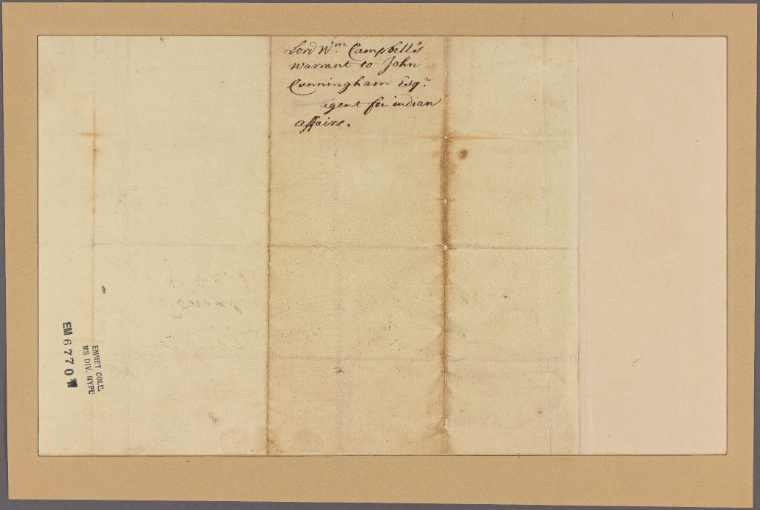 Lord Wm Campbell's
Warrant to John
Cunningham Esqr
agent for indian
affairs.
EMMET COLL.
MS DIV. NYPL
EM 6770